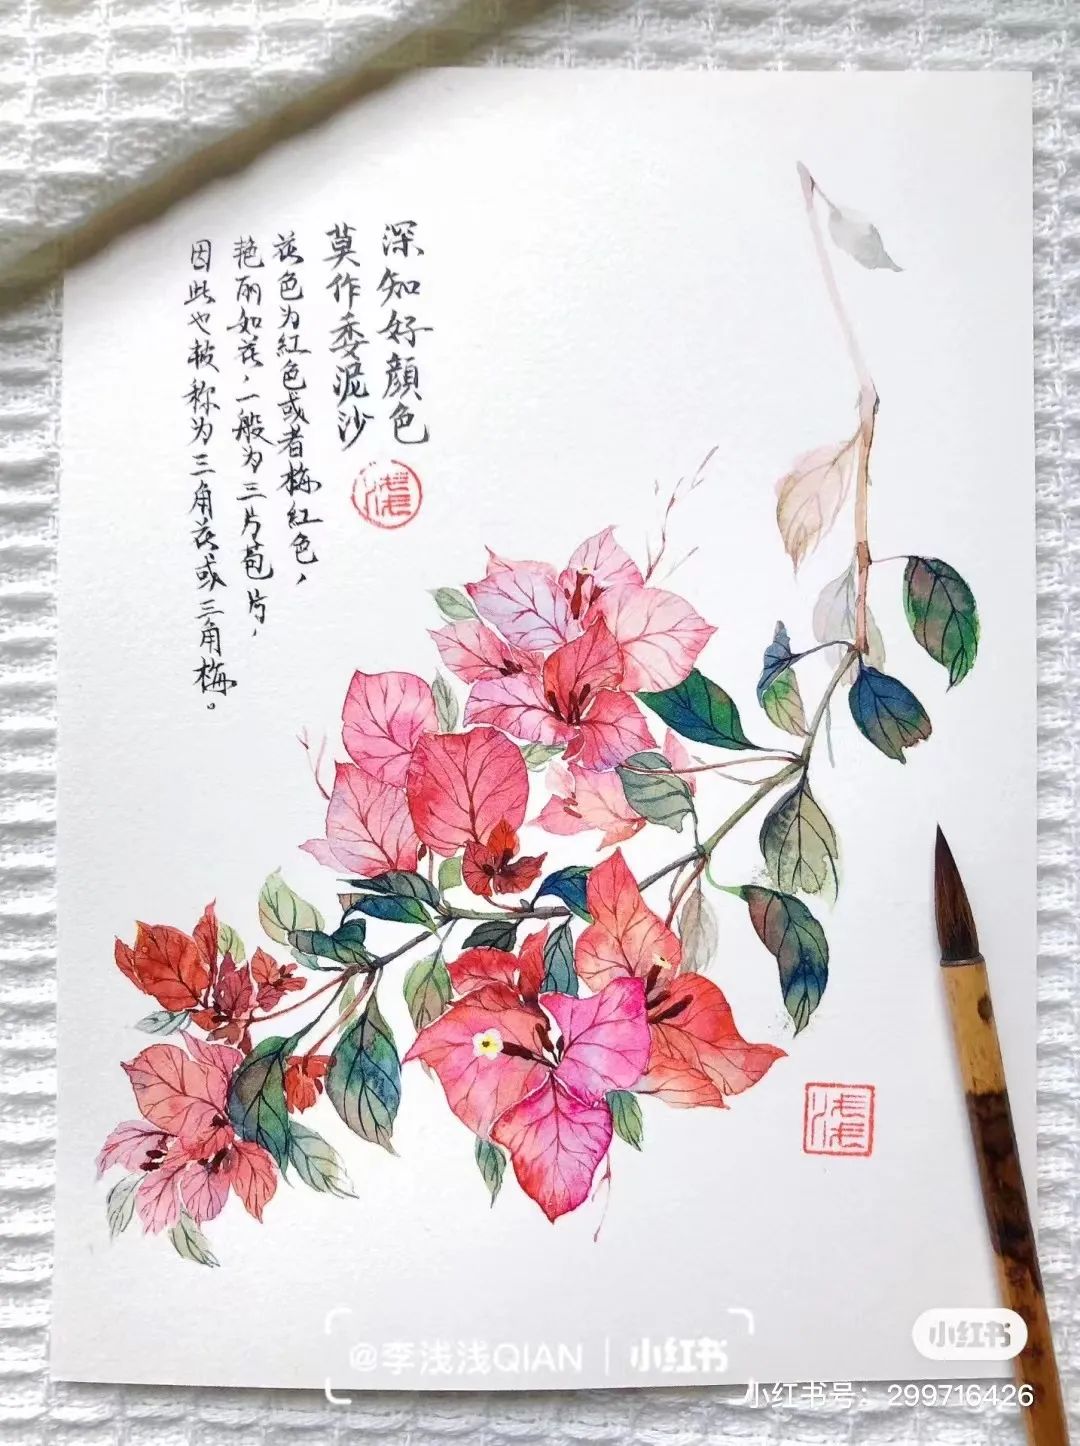 深知好顏色
莫作委泥沙
花色为紅色或者梅紅色，
艳丽如花，一般为三片苞片，
因此也被称为三角花或三角梅。
浅浅
浅浅
小红书
@李浅浅QIAN | 小红书
小红书号：299716426